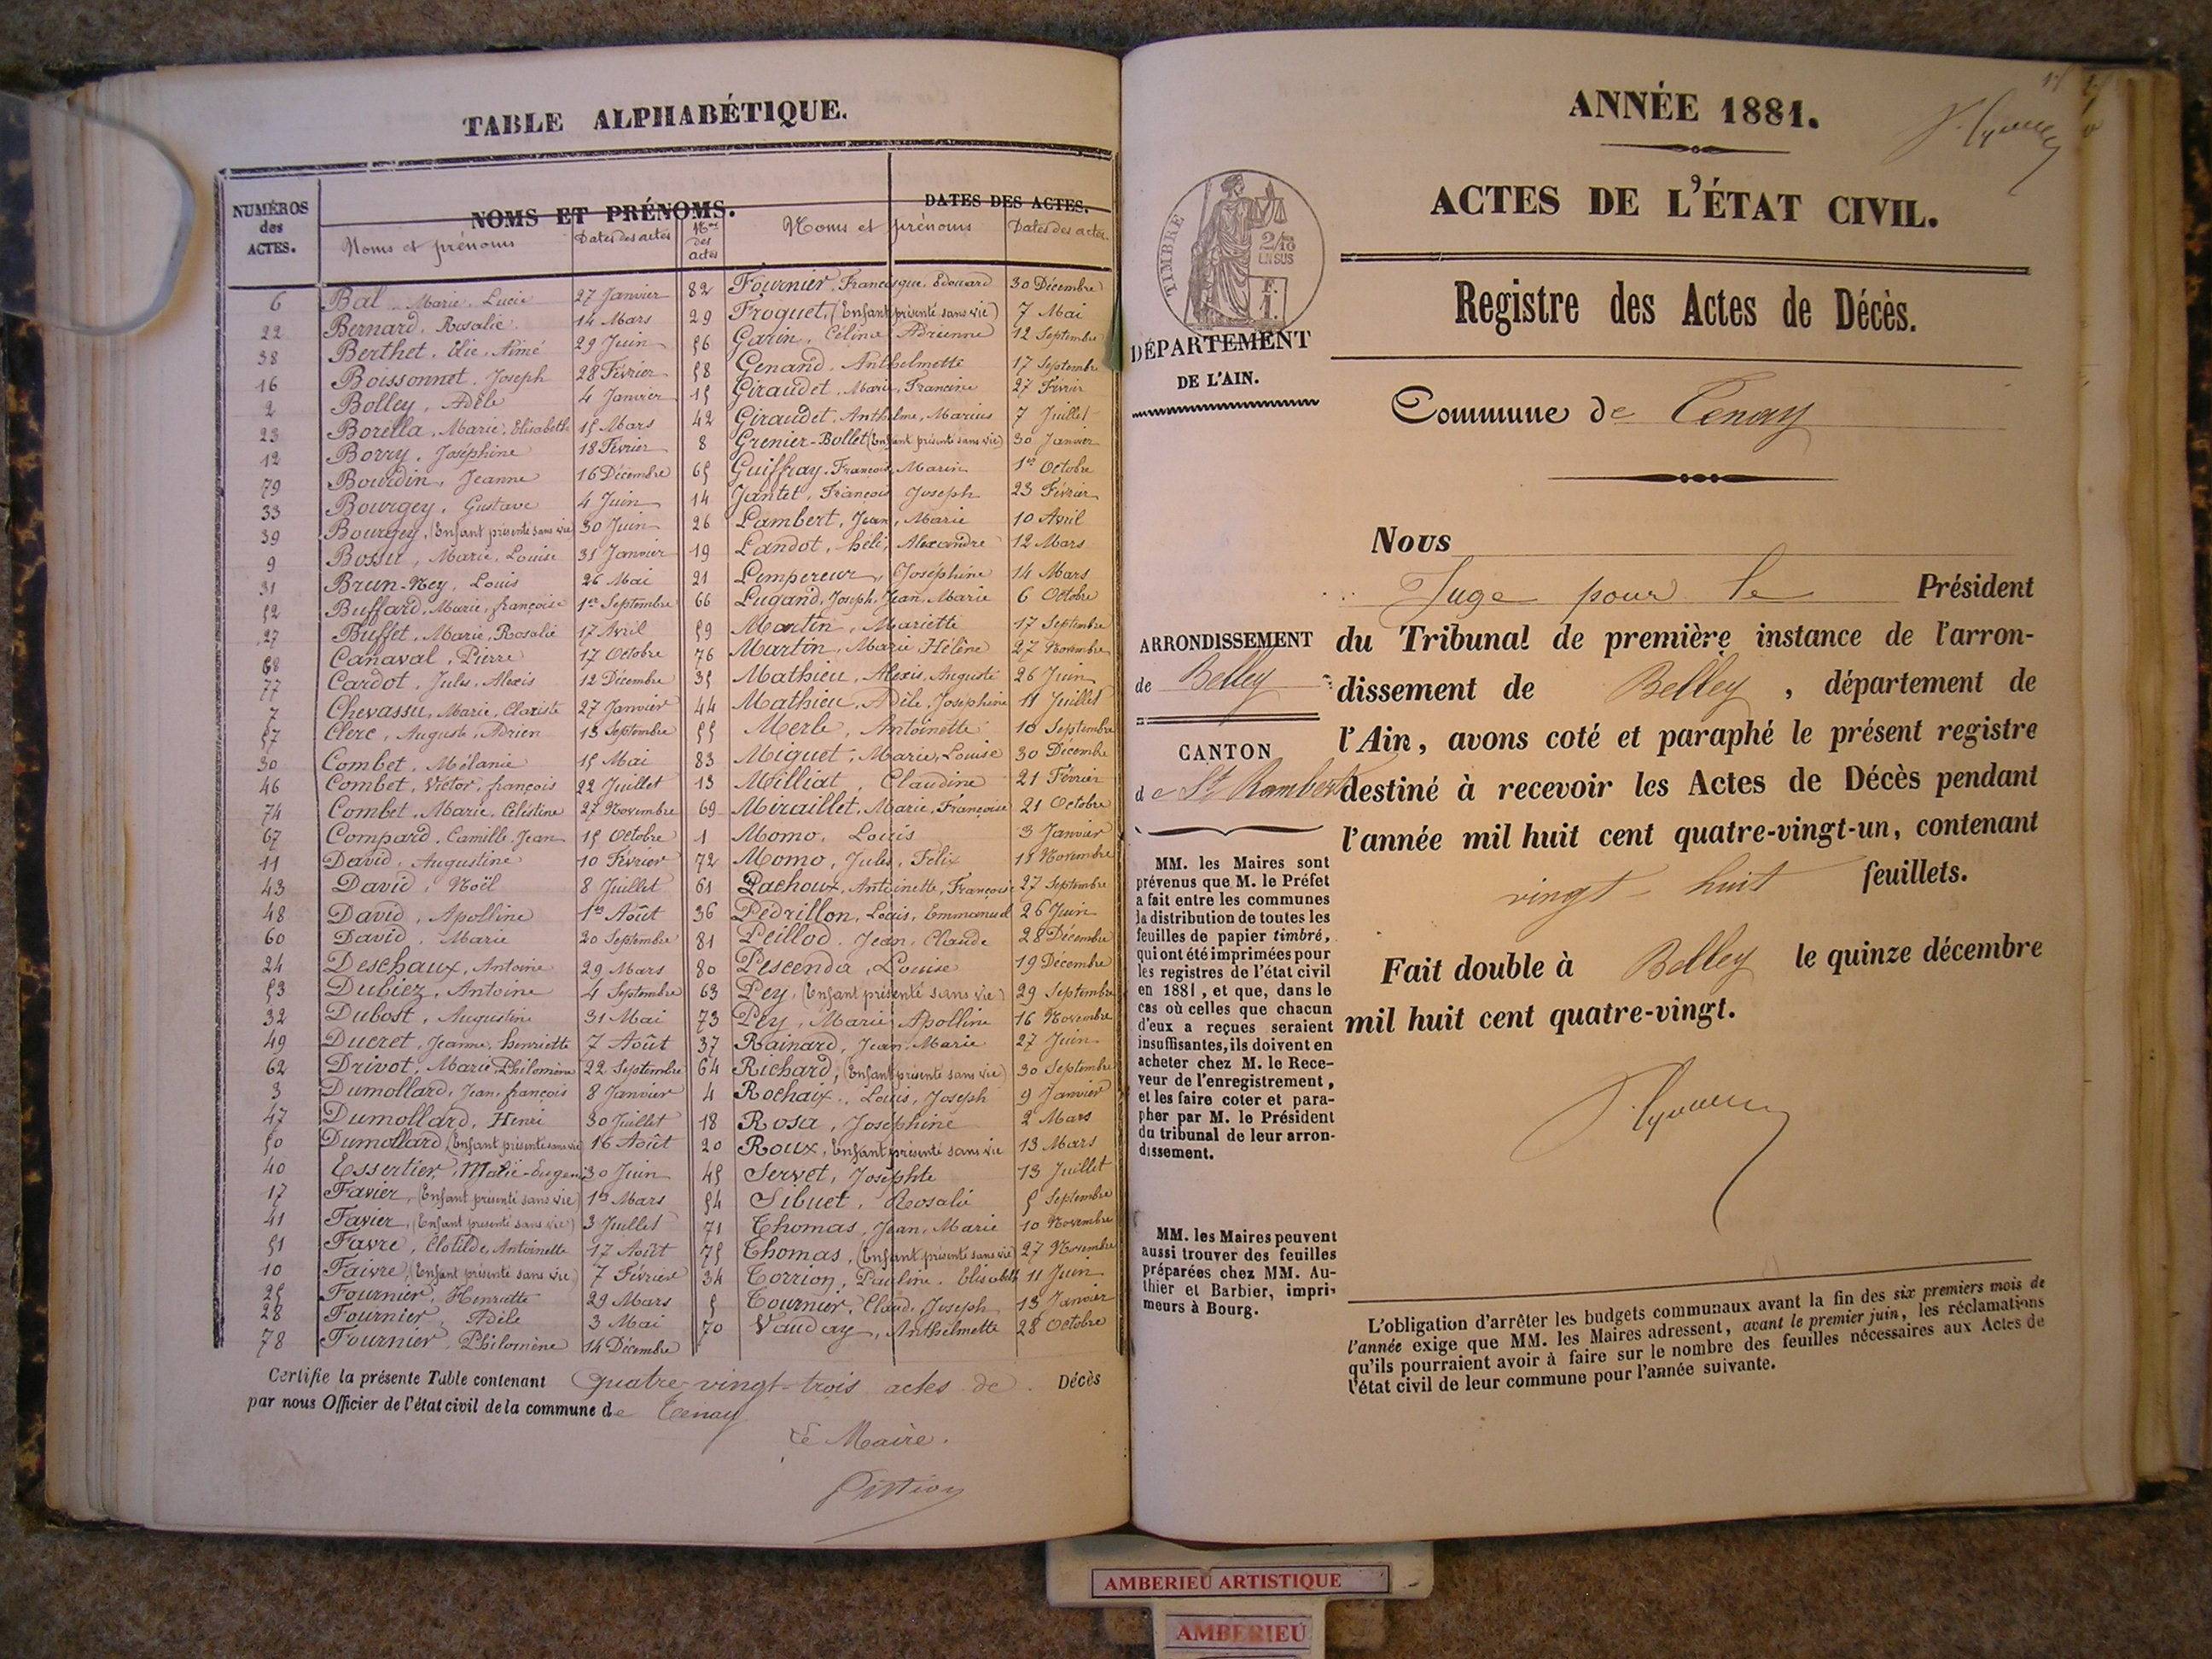 TABLE ALPHABÉTIQUE.
NUMÉROS des ACTES. NOMS ET PRÉNOMS. DATES DES ACTES.
Noms et prénoms Dates des actes Nos des actes Noms et prénoms Dates des actes
6 Bal Marie Lucie 27 Janvier 82 Fournier, Francisque, Edouard 30 Décembre
22 Bernard, Rosalie 14 Mars 29 Froquet, (Enfant présenté sans vie) 7 Mai
38 Berthet, Elie, Aimé 29 Juin 56 Garin, Céline Adrienne 12 Septembre
16 Boissonnet, Joseph 28 Février 58 Genand, Anthelmette 17 Septembre
2 Bolley, Adèle 4 Janvier 15 Giraudet, Marie, Francine 27 Février
23 Borella, Marie, Elisabeth 15 Mars 42 Giraudet, Anthelme, Marius 7 Juillet
12 Borry, Joséphine 18 Février 8 Grenier-Bollet (Enfant présenté sans vie) 30 Janvier
79 Bourdin, Jeanne 16 Décembre 65 Guiffray, François, Marin 1er Octobre
33 Bourgey, Gustave 4 Juin 14 Jantet, François Joseph 23 Février
39 Bourgey, (Enfant présenté sans vie) 30 Juin 26 Lambert, Jean, Marie 10 Avril
9 Bossu, Marie, Louise 31 Janvier 19 Landot, héli, Alexandre 12 Mars
31 Brun-Ney, Louis 26 Mai 21 Lempereur, Joséphine 14 Mars
52 Buffard, Marie, françoise 1er Septembre 66 Lugand, Joseph, Jean, Marie 6 Octobre
27 Buffet, Marie, Rosalie 17 Avril 59 Martin, Mariette 17 Septembre
68 Canaval, Pierre 17 Octobre 76 Martin, Marie Hélène 27 Novembre
77 Cardot, Jules, Alexis 12 Décembre 35 Mathieu, Alexis, Auguste 26 Juin
7 Chevassu, Marie, Clariste 27 Janvier 44 Mathieu, Adèle, Joséphine 11 Juillet
57 Clerc, Auguste, Adrien 13 Septembre 55 Merle, Antoinette 10 Septembre
30 Combet, Mélanie 15 Mai 83 Miguet, Marie, Louise 30 Décembre
46 Combet, Victor, françois 22 Juillet 13 Milliat, Claudine 21 Février
74 Combet, Marie, Célestine 27 Novembre 69 Miraillet, Marie, Françoise 21 Octobre
67 Compard, Camille, Jean 15 Octobre 1 Momo, Louis 3 Janvier
11 David, Augustine 10 Février 72 Momo, Jules, Félix Novembre
43 David, Noël 8 Juillet 61 Pachoux, Antoinette, Françoise 27 Septembre
48 David, Apolline 1er Août 36 Pédrillon, Louis, Emmanuel 26 Juin
60 David, Marie 20 Septembre 81 Peillod, Jean, Claude 28 Décembre
24 Deschaux, Antoine 29 Mars 80 Pescenda, Louise 19 Décembre
53 Dubiez, Antoine 4 Septembre 63 Pey, (Enfant présenté sans vie) 29 Septembre
32 Dubost, Augustine 31 Mai 73 Pey, Marie, Apolline 16 Novembre
49 Ducret, Jeanne, henriette 7 Août 37 Rainard, Jean Marie 27 Juin
62 Drivot, Marie, Philomène 22 Septembre 64 Richard, (Enfant présenté sans vie) 30 Septembre
3 Dumollard, Jean, françois 8 Janvier 4 Rochaix, Louis, Joseph 9 Janvier
47 Dumollard, Henri 30 Juillet 18 Rosa, Joséphine 2 Mars
50 Dumollard (Enfant présenté sans vie) 16 Août 20 Roux, Enfant présenté sans vie 13 Mars
40 Essertier, Marie-Eugénie 30 Juin 45 Servet, Josephte 13 Juillet
17 Favier, (Enfant présenté sans vie) 1er Mars 54 Sibuet, Rosalie 5 Septembre
41 Favier, (Enfant présenté sans vie) 3 Juillet 71 Thomas, Jean, Marie 10 Novembre
51 Favre, Clotilde, Antoinette 17 Août 75 Thomas, (Enfant présenté sans vie) 27 Novembre
10 Faivre, (Enfant présenté sans vie) 7 Février 34 Torrion, Pauline, Elisabeth 11 Juin
25 Fournier, Henriette 29 Mars 5 Tournier, Claude, Joseph 13 Janvier
28 Fournier, Adèle 3 Mai 70 Vauday, Anthelmette 28 Octobre
78 Fournier, Philomène 14 Décembre
Certifie la présente Table contenant quatre-vingt-trois actes de Décès
par nous Officier de l'état civil de la commune de Tenay
Le Maire.
ANNÉE 1881.
ACTES DE L'ÉTAT CIVIL.
Registre des Actes de Décès.
TIMBRE
2/10
EN SUS
F.
1.
DÉPARTEMENT
DE L'AIN.
Commune de Tenay
Nous
Juge pour le Président
du Tribunal de première instance de l'arron-
dissement de Belley, département de
l'Ain, avons coté et paraphé le présent registre
destiné à recevoir les Actes de Décès pendant
l'année mil huit cent quatre-vingt-un, contenant
vingt-huit feuillets.
Fait double à Belley le quinze décembre
mil huit cent quatre-vingt.
ARRONDISSEMENT
de Belley
CANTON
de St Rambert
MM. les Maires sont
prévenus que M. le Préfet
a fait entre les communes
la distribution de toutes les
feuilles de papier timbré,
qui ont été imprimées pour
les registres de l'état civil
en 1881, et que, dans le
cas où celles que chacun
d'eux a reçues seraient
insuffisantes, ils doivent en
acheter chez M. le Rece-
veur de l'enregistrement,
et les faire coter et para-
pher par M. le Président
du tribunal de leur arron-
dissement.
MM. les Maires peuvent
aussi trouver des feuilles
préparées chez MM. Au-
thier et Barbier, impri-
meurs à Bourg.
L'obligation d'arrêter les budgets communaux avant la fin des six premiers mois de
l'année exige que MM. les Maires adressent, avant le premier juin, les réclamations
qu'ils pourraient avoir à faire sur le nombre des feuilles nécessaires aux Actes de
l'état civil de leur commune pour l'année suivante.
AMBERIEU ARTISTIQUE
AMBERIEU